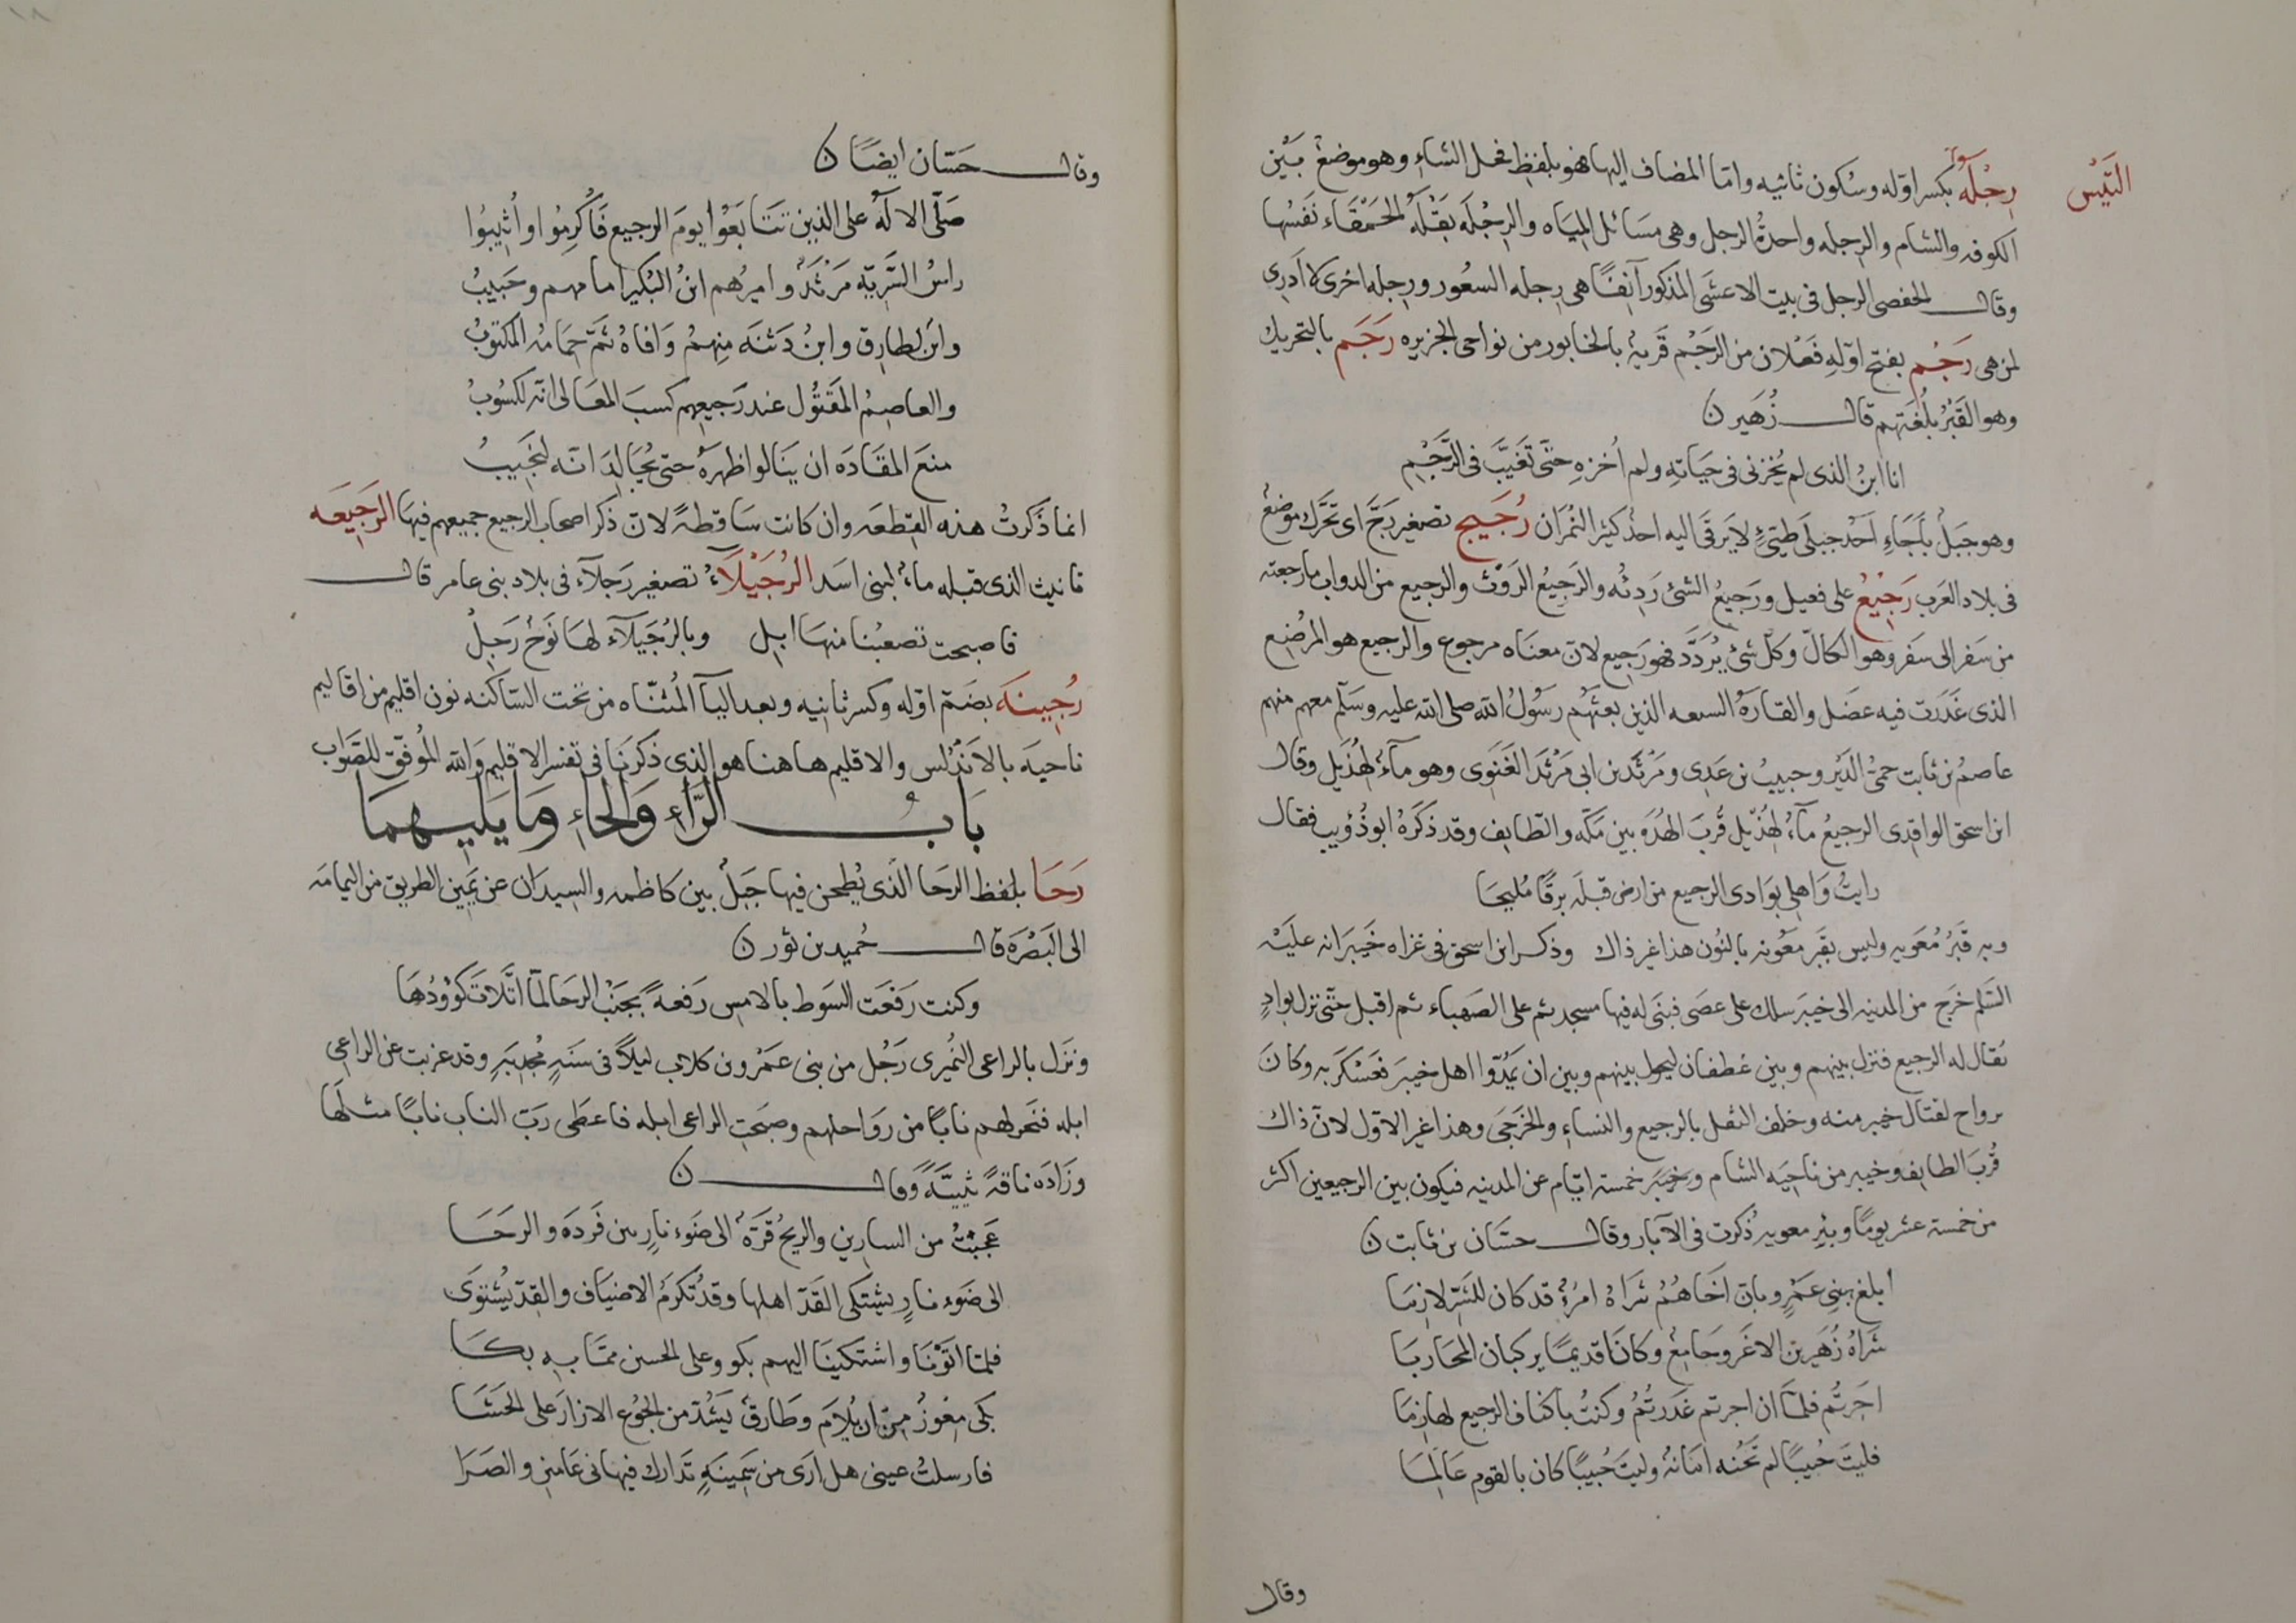 التَّيْس
رِجْلَةُ بكسر اوّله وسكون ثانيه وامّا المضاف إليها فهو بلفظ فحل الشاءِ وهو موضعٌ بَيْن
الكوفه والشام والرجله واحدةُ الرجل وهى مسَائل الميَاه والرِجْلَه بَقْلَةُ الحَمْقَاء نَفَسُها
وقال الحفصى الرجل فى بيت الاعشَى المذكور آنفًا هى رِجله السعُور ورِجله اخرى لا اَدرِى
لمن هى رَجُم بفتح اوّلهِ فَعْلان من الرَجْم قَريةٌ بالخابور من نواحى الجزيره رَجَم بالتحريك
وهو القَبْرُ بلُغَتِهم قال زُهَير ن
انا ابنُ الذى لم يُخْزنى فى حيَاتهِ ولم اُخزهِ حتّى تَغَيَّبَ فى الرَّجَمِ
وهو جبَلٌ بأَجَاءِ اَحَدْ جبلَى طيّىءٍ لا يَرقَى اليه احدٌ كثير النُمْرَان رُجَيج تصغير رَجَّ اى تحَرَّك موضعٌ
فى بلاد العَرب رَجيْعٌ على فعيل ورَجيعُ الشئ رَدِئُه والرَجيعُ الرَوْث والرجيع من الدواب ما رجعته
من سَفر الى سَفَر وهو الكالّ وكلّ شئ يُرَدَّد فهو رَجيع لانّ معنَاه مرجوع والرجيع هو المَوْضع
الذى غَدَرَت فيه عضَل والقارَةُ السبعه الذين بعثَهُم رَسُولُ الله صلى الله عليه وسَلّم معهم منهم
عاصمُ بن ثابت حمىُّ الدَبْر وحبيبُ بن عَدِى ومَرْثَد بن ابى مَرْثَد الغَنَوِى وهو مآءٌ لهُذَيل وقال
ابن اسحق الواقدى الرجيعُ مآءٌ لهُذَيل قُربَ الهُدَة بين مَكّه والطّايف وقد ذكرَهُ ابو ذُؤيب فقال
رايتُ وَاهلى بوَادى الرجيع من ارض قبلَه برقًا مُليحَا
وبه قَبْرُ مُعَويه وليس بقبر معُونه بالنُون هذا غير ذاك وذكر ابن اسحق فى غزاه خَيبَر انه علَيْه
السَلم خرَج من المدينه الى خيبَر سلك على عصَى فبَنَى له فيها مسجد ثم على الصَهباء ثم اقبل حتّى نزل بوادٍ
يقال له الرجيع فنزل بينهم وبين غطفان ليحول بينهم وبين ان يمُدّوا اهل خيبَر فعَسْكرَ به وكانَ
يرواح لقتال خيبر منه وخلف الثقل بالرجيع والنساءِ والخَرجَى وهذا غير الاوّل لانّ ذاك
قُربَ الطايف وخيبر من ناحيَه الشام وخيبَر خمسة ايّام عن المدينه فيكون بين الرجيعين اكثر
من خمسة عشر يومًا وبئر معويه ذُكرت فى الآبار وقال حسّان بن ثابت ن
اَبلغ بنى عَمْرٍو بانّ اخَاهُمُ شَراهُ امرُءٌ قد كان للشَّرّ لازِمَا
شَراهُ زُهَير بن الاغَر وجَامعٌ وكانَا قديمًا يركبان المحَارِمَا
اجَرتُم فلمّا ان اجرتم غَدَرتُمُ وكنتُ باكناف الرجيع لهازمَا
فليتَ خُبيبًا لم تَخُنه امَانةٌ وليتَ خُبيبًا كان بالقوم عَالِمَا
وقال
وقال حَسّان ايضًا ن
صَلّى الالَهُ على الذين تَتَابَعُوا يومَ الرجيع فَأُكرِمُوا واُثيبُوا
راسُ السَّريّة مَرْثَدٌ واميرُهم ابنُ البُكير امامهم وخَبيبُ
وابنٌ لطارِق وابنُ دَثنَه مِنهمُ وَافاهُ ثَمّ حِمَامُه المكتوبُ
والعاصمُ المَقتُول عند رَجيعهم كسبَ المعَالى انّه لكسُوبُ
منعَ المقَادَه ان ينَالوا ظهرَهُ حتى يُجَالِدَ انّه لنَجيبُ
انما ذَكرتُ هذه القِطعَه وان كانت سَاقطهً لانّ ذكر اصحاب الرجيع جميعهم فيهَا الرَجيعَه
تانيث الذى قبله ماءٌ لبنى اسَد الرُجَيْلَاءُ تصغير رَجلآء فى بلاد بنى عامر قال
فاصبحت تصعبُنا منهَا ابِل وبالرُجَيلآء لها نَوحٌ رَجلُ
رُجينَة بضَمّ اوّله وكسر ثانيه وبعد اليآ المُثنّاه من تحت السّاكنه نون اقليم من اقاليم
ناحيَه بالاَندَلس والاقليم هاهنا هو الذى ذكرنَا فى تفسر الاقليم وَالله المُوفّق للصَّوَاب
بَابُ الرَّاءِ وَالحَاءِ وَمَا يَليهِمَا
رَحَا بلفظ الرحَا الذى يُطحن فيها جَبلٌ بين كاظمه والسيدَان عن يَمين الطريق من اليمامَه
الى البَصْرَه قال حُميد بن ثور ن
وكنت رَفعَت السَوط بالامس رَفعةً بجَنْب الرحَا لمّا اتّلاَبّ كوُودُهَا
ونَزل بالراعى النُميرى رَجُل من بنى عَمْرو بن كلاب ليلًا فى سنَهٍ مُجدبَهٍ وقد عزبت عن الراعى
ابله فنحر لهم نابًا من رَوَاحلهم وصبَحت الراعى ابله فاعطَى رَبّ الناب نابًا مثلَها
وزَادَه ناقةً ثنيّةً وقال ن
عَجبْتُ من السارين والريحُ قَرّةٌ الى ضَوء نارٍ بين فَردَه والرحَا
الى ضَوء نارٍ يشتكى القَدّ اهلها وقد تُكرَمُ الاضيَاف والقِدّ يُشتوَى
فلمّا اتَوْنَا واشتكينَا اليهم بكو وعلى الحسن ممّا بِهِ بكَا
بكَى مِعْوِزٌ مِن ان يُلامَ وطَارقٌ يَشُدّ من الجُوع الازارَ على الحَشَا
فارسلتُ عينى هل ارَى من سَمينَةٍ تَدارك فيها نى عَامين والصَرَا